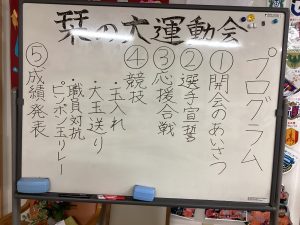 栞の大運動会
プログラム
①開会のあいさつ
②選手宣誓
③応援合戦
④競技
・玉入れ
・大玉送り
・職員対抗
ピンポン玉リレー
⑤成績発表